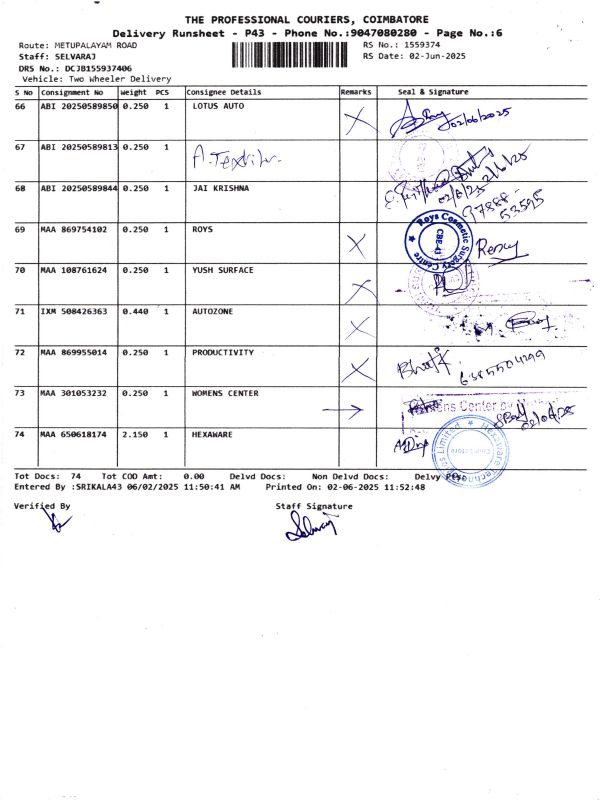 THE PROFESSIONAL COURIERS, COIMBATORE
Delivery Runsheet - P43 - Phone No.:9047080280 - Page No.:6
Route: METUPALAYAM ROAD RS No.: 1559374
Staff: SELVARAJ RS Date: 02-Jun-2025
DRS No.: DCJB155937406
Vehicle: Two Wheeler Delivery
S No Consignment No Weight PCS Consignee Details Remarks Seal & Signature
66 ABI 20250589850 0.250 1 LOTUS AUTO 02/06/2025
67 ABI 20250589813 0.250 1 A. Textile. 2/6/25
68 ABI 20250589844 0.250 1 JAI KRISHNA 02/6/25
97888-
53595
69 MAA 869754102 0.250 1 ROYS Roys Cosmetic Surgery Centre CBE-43
70 MAA 108761624 0.250 1 YUSH SURFACE
71 IXM 508426363 0.440 1 AUTOZONE
72 MAA 869955014 0.250 1 PRODUCTIVITY 6385504299
73 MAA 301053232 0.250 1 WOMENS CENTER Womens Center by 02/06/25
74 MAA 650618174 2.150 1 HEXAWARE Hexaware Technologies Limited
Tot Docs: 74 Tot COD Amt: 0.00 Delvd Docs: Non Delvd Docs: Delvy
Entered By :SRIKALA43 06/02/2025 11:50:41 AM Printed On: 02-06-2025 11:52:48
Verified By Staff Signature
Selvaraj